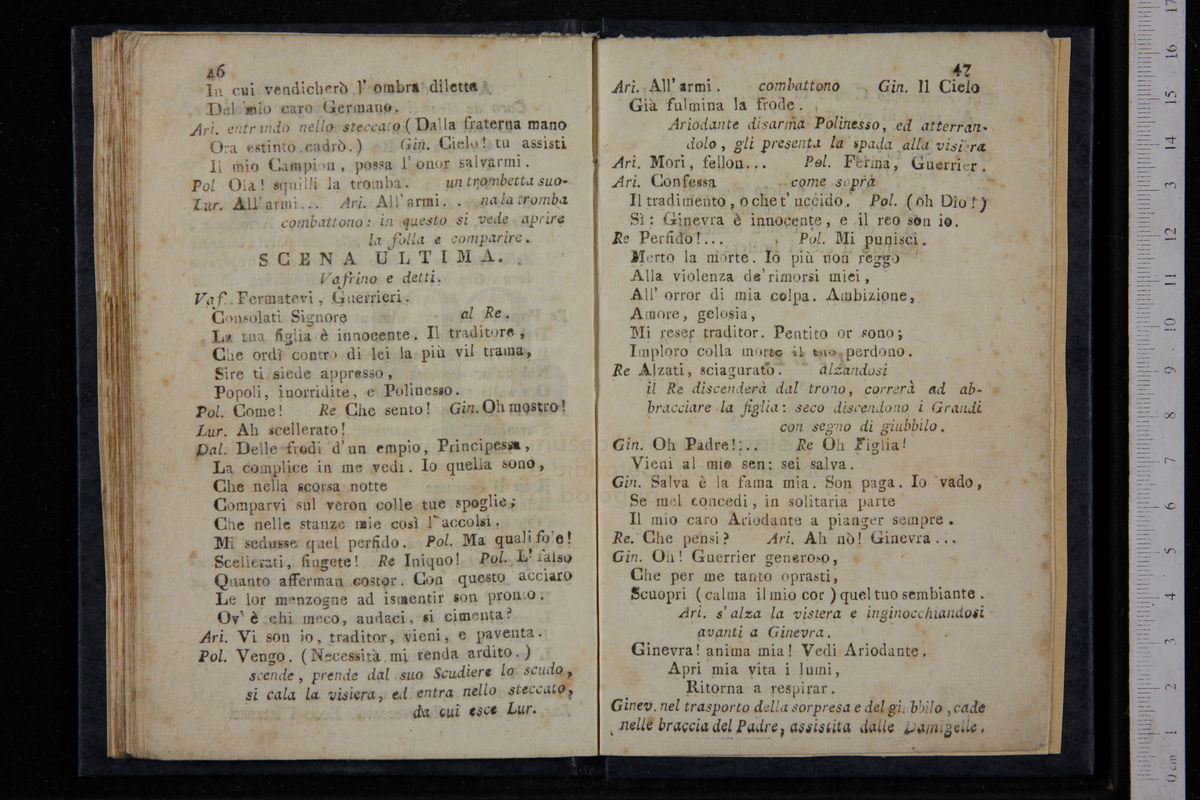 46
In cui vendicherò l' ombra diletta
Del mio caro Germano.
Ari. entrando nello steccato (Dalla fraterna mano
Ora estinto cadrò.) Gin. Cielo! tu assisti
Il mio Campion, possa l' onor salvarmi.
Pol Ola! squilli la tromba. un trombetta suo-
Lur. All' armi... Ari. All' armi.. na la tromba
combattono: in questo si vede aprire
la folla e comparire.
SCENA ULTIMA.
Vafrino e detti.
Vaf. Fermatevi, Guerrieri.
Consolati Signore al Re.
La tua figlia è innocente. Il traditore,
Che ordì contro di lei la più vil trama,
Sire ti siede appresso,
Popoli, inorridite, e Polinesso.
Pol. Come! Re Che sento! Gin. Oh mostro!
Lur. Ah scellerato!
Dal. Delle frodi d' un empio, Principessa,
La complice in me vedi. Io quella sono,
Che nella scorsa notte
Comparvi sul veron colle tue spoglie;
Che nelle stanze mie così l' accolsi.
Mi sedusse quel perfido. Pol. Ma quali fo'e!
Scellerati, fingete! Re Iniquo! Pol. L' falso
Quanto afferman costor. Con questo acciaro
Le lor menzogne ad ismentir son pronto.
Ov' è chi meco, audaci, si cimenta?
Ari. Vi son io, traditor, vieni, e paventa.
Pol. Vengo. (Necessità mi renda ardito.)
scende, prende dal suo Scudiere lo scudo,
si cala la visiera, ed entra nello steccato,
da cui esce Lur.
47
Ari. All' armi. combattono Gin. Il Cielo
Già fulmina la frode.
Ariodante disarma Polinesso, ed atterran-
dolo, gli presenta la spada alla visiera
Ari. Mori, fellon... Pol. Ferma, Guerrier.
Ari. Confessa come sopra
Il tradimento, o che t' uccido. Pol. (oh Dio!)
Sì: Ginevra è innocente, e il reo son io.
Re Perfido!... Pol. Mi punisci.
Merto la morte. Io più non reggo
Alla violenza de' rimorsi miei,
All' orror di mia colpa. Ambizione,
Amore, gelosia,
Mi reser traditor. Pentito or sono;
Imploro colla morte il tuo perdono.
Re Alzati, sciagurato. alzandosi
il Re discenderà dal trono, correrà ad ab-
bracciare la figlia: seco discendono i Grandi
con segno di giubbilo.
Gin. Oh Padre!... Re Oh Figlia!
Vieni al mio sen: sei salva.
Gin. Salva è la fama mia. Son paga. Io vado,
Se mel concedi, in solitaria parte
Il mio caro Ariodante a pianger sempre.
Re. Che pensi? Ari. Ah nò! Ginevra...
Gin. Oh! Guerrier generoso,
Che per me tanto oprasti,
Scuopri (calma il mio cor) quel tuo sembiante.
Ari. s' alza la visiera e inginocchiandosi
avanti a Ginevra.
Ginevra! anima mia! Vedi Ariodante.
Apri mia vita i lumi,
Ritorna a respirar.
Ginev. nel trasporto della sorpresa e del giubbilo, cade
nelle braccia del Padre, assistita dalle Damigelle.